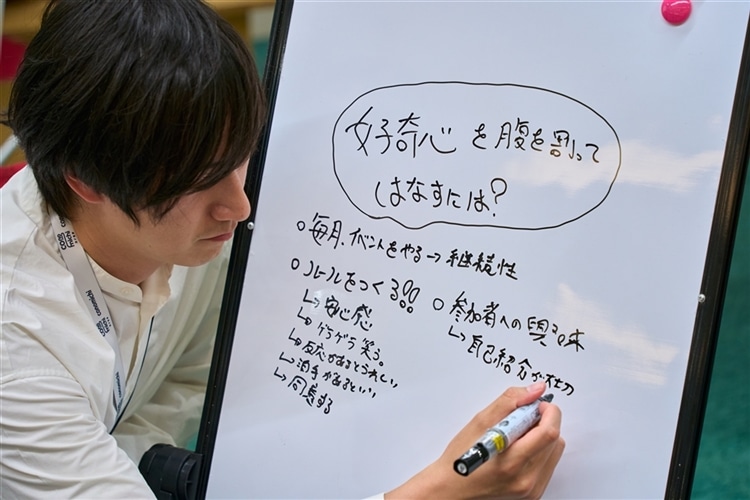 好奇心を腹を割って
はなすには?
○毎月、イベントをやる→継続性
○ルールをつくる!!
↳安心感
↳ゲラゲラ笑う。
↳反応があるとうれしい
↳拍手があるといい
↳同意する
○参加者への興味
↳自己紹介が大切